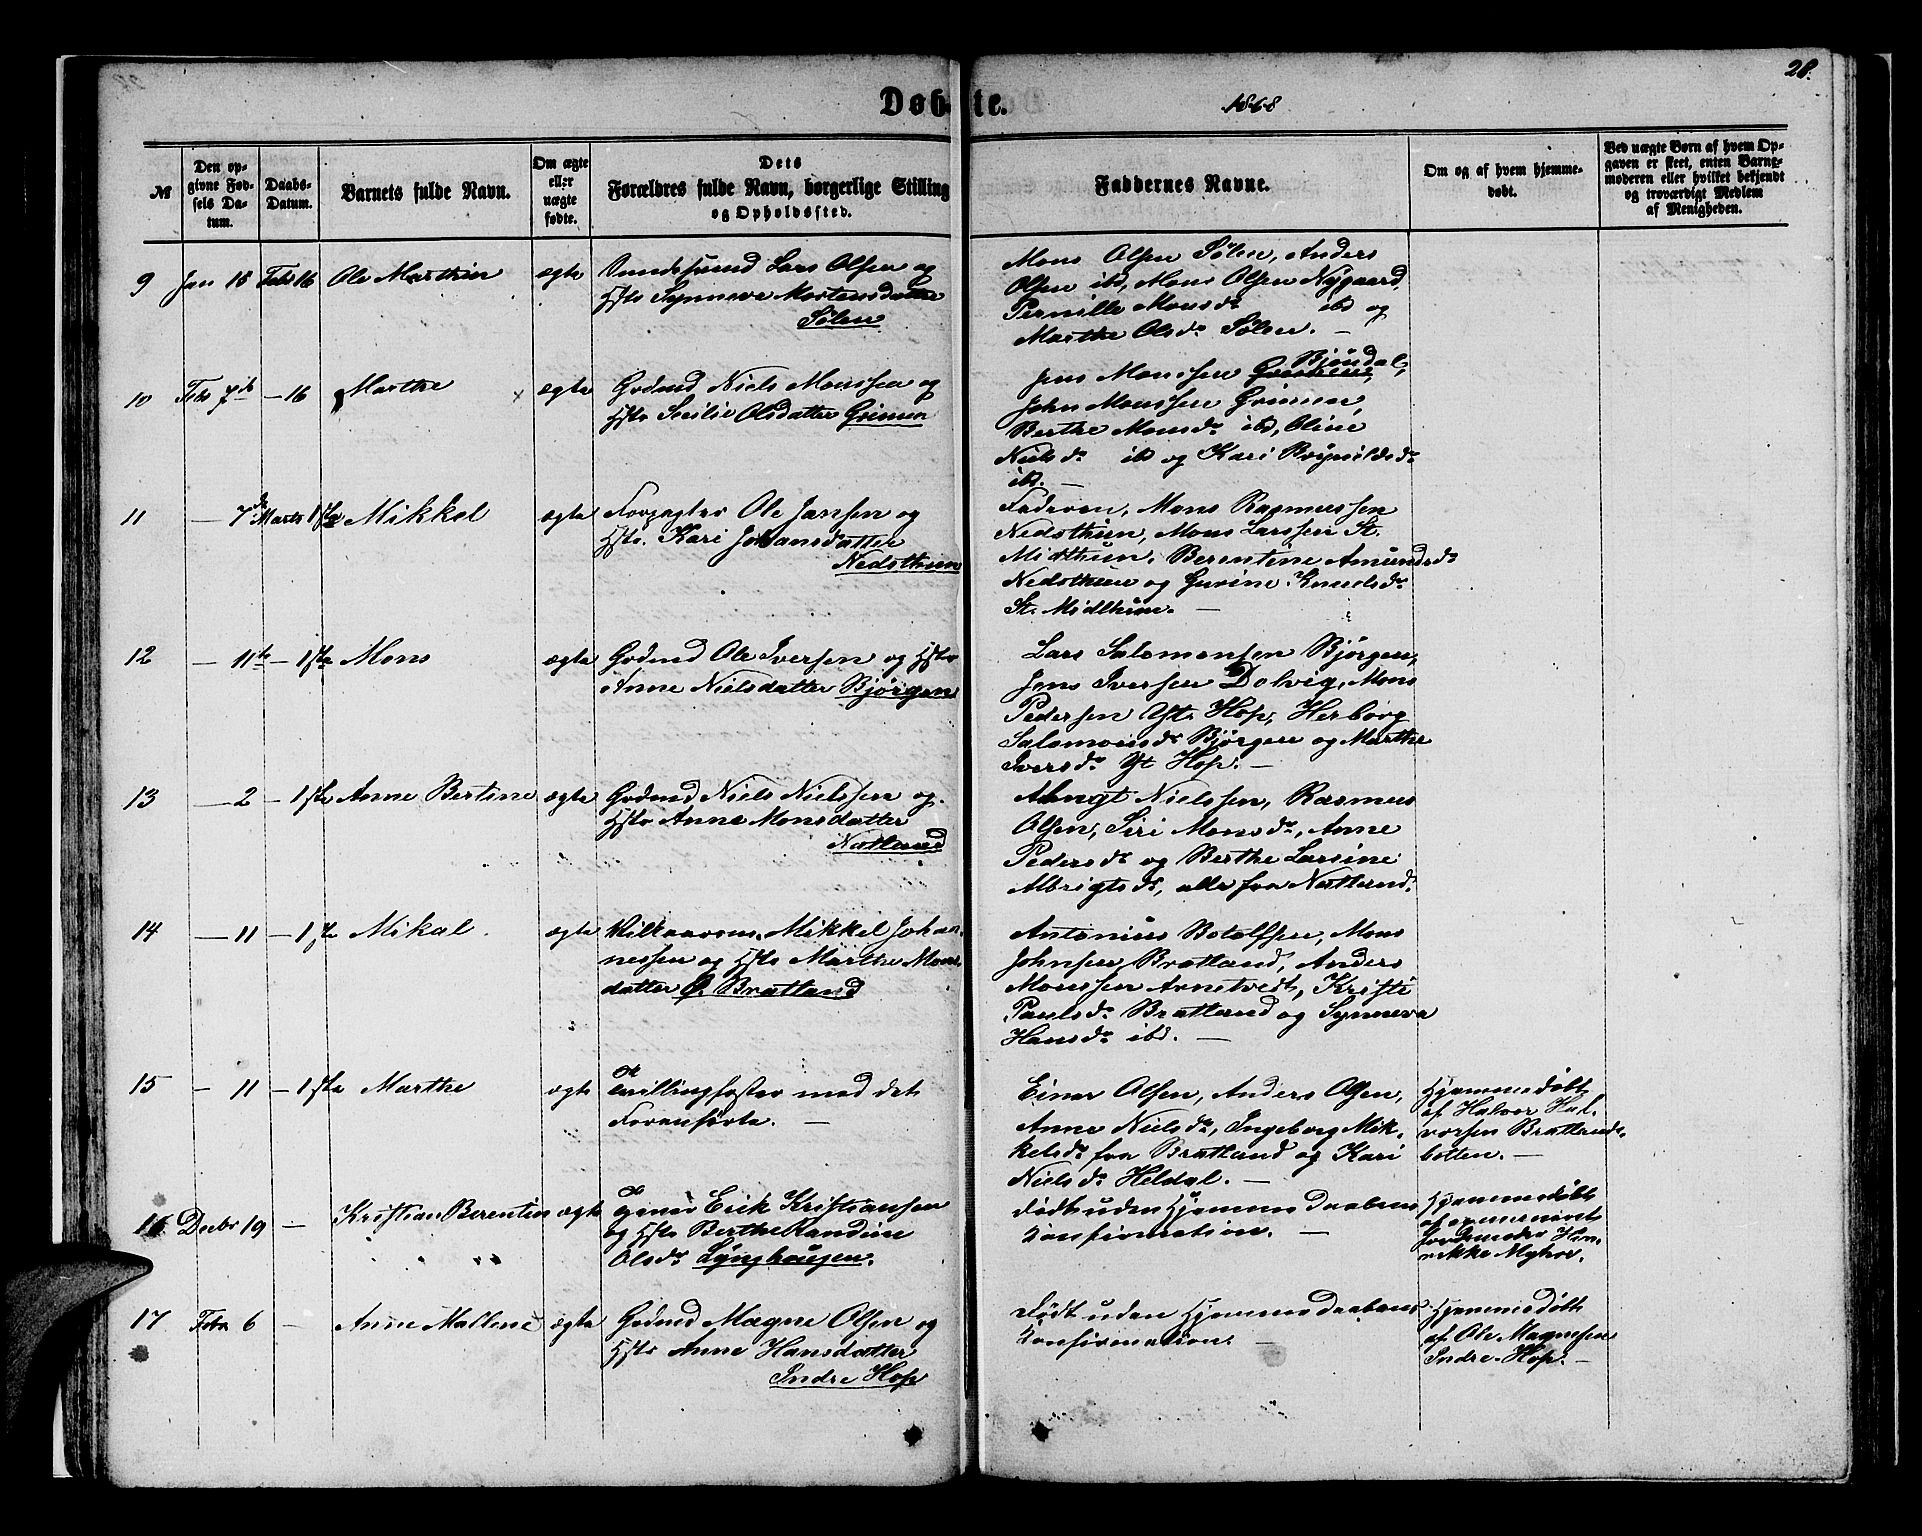 28.
Døbte.
1868
№
Den opgivne Fødsels Datum.
Daabs-Datum.
Barnets fulde Navn.
Om ægte eller uægte fødte.
Dets Forældres fulde Navn, borgerlige Stilling og Opholdssted.
Faddernes Navne.
Om og af hvem hjemmedøbt.
Ved uægte Børn af hvem Opgaven er skeet, enten Barnemoderen eller hvilket bekjendt og troværdigt Medlem af Menigheden.
9 Jan 15 Feb 16 Ole Marthin ægte
Lars Olsen og
Hstr Synneve Mortensdatter
Sølen
Mons Olsen Sølen, Anders
Olsen ibd, Mons Olsen Nygaard,
Pernille Monsdr ibd og
Marthe Olsdr Sølen. —
10 Feb 7de — 16 Marthe ægte
Grdmd Niels Monssen og
Hstr Secilie Olsdatter Grimen
Jens Monssen Bjøndal,
John Monssen Grimen,
Berthe Monsdr ibd, Oline
Nielsdr ibd og Kari Brynildsdr
ibd. —
11 — 7de Marts 1ste Mikkel ægte
Forpagter Ole Jansen og
Hstr. Kari Johansdatter
Nedsthun
Faderen, Mons Rasmussen
Nedsthun, Mons Larssen St.
Midthun, Berentine Amundsdr
Nedsthun og Gurine Knudsdr
St. Midthun. —
12 — 11te — 1ste Mons ægte
Grdmd Ole Iversen og Hstr
Anne Nielsdatter Bjørgen
Lars Salomonsen Bjørgen,
Jens Iversen Dolvig, Mons
Pedersen Yt. Hop, Herborg
Salomonsdr Bjørgen og Marthe
Iversdr Yt Hop. —
13 — 2 — 1ste Anne Bertine ægte
Grdmd Niels Nielssen og
Hstr Anne Monsdatter
Natland
Nielssen, Rasmus
Olsen, Siri Monsdr, Anne
Pedersdr og Berthe Larsine
Albrigtsdr, alle fra Natland.
14 — 11 — 1ste Mikal ægte
Vilkaarsm. Mikkel Johannessen
og Hstr Marthe Monsdatter
Ø. Bratland
Antonius Botolfsen, Mons
Johnsen Bratland, Anders
Monssen Arnetvedt, Kristi
Paulsdr Bratland og Synneva
Hansdr ibd. —
15 — 11 — 1ste Marthe ægte
Tvillingsøster med det
Foranførte. —
Einar Olsen, Anders Olsen,
Anne Nielsdr, Ingeborg Mikkelsdr
fra Bratland og Kari
Nielsdr Heldal. —
Hjemmedøbt
af Halvor Halvorsen
Bratlandsbotten. —
16 Decbr 19 — Kristian Berentin ægte
Erik Kristiansen
og Hstr Berthe Randine
Olsdr Lynghaugen.
Død uden Hjemmedaabens
Konfirmation. —
Hjemmedøbt
af
Jordemoder
Myhre.
17 Febr 6 — Anne Mallene ægte
Grdmd Magne Olsen og
Hstr Anne Hansdatter
Indre Hop
Død uden Hjemmedaabens
Konfirmation. —
Hjemmedøbt
af Ole Magnesen
Indre Hop. —